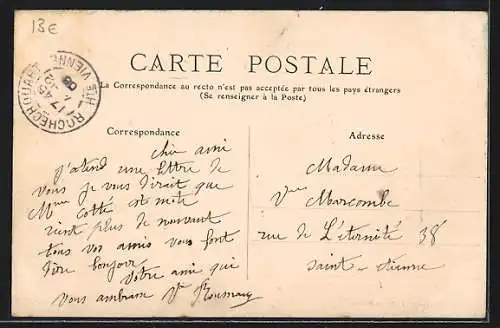 13€
CARTE POSTALE
La Correspondance au recto n'est pas acceptée par tous les pays étrangers
(Se renseigner à la Poste)
ROCHECHOUART
HTE VIENNE
17 45
08
Correspondance
Adresse
chère amie
j'attend une lettre de
vous je vous dirait que
Mme cotté est
rient plus de nouvaut
tous vos amis vous font
dire bonjour
Votre ami qui
vous embrasse Vve
Madame
Vve Marcombe
rue de L'éternité 38
Saint-etienne